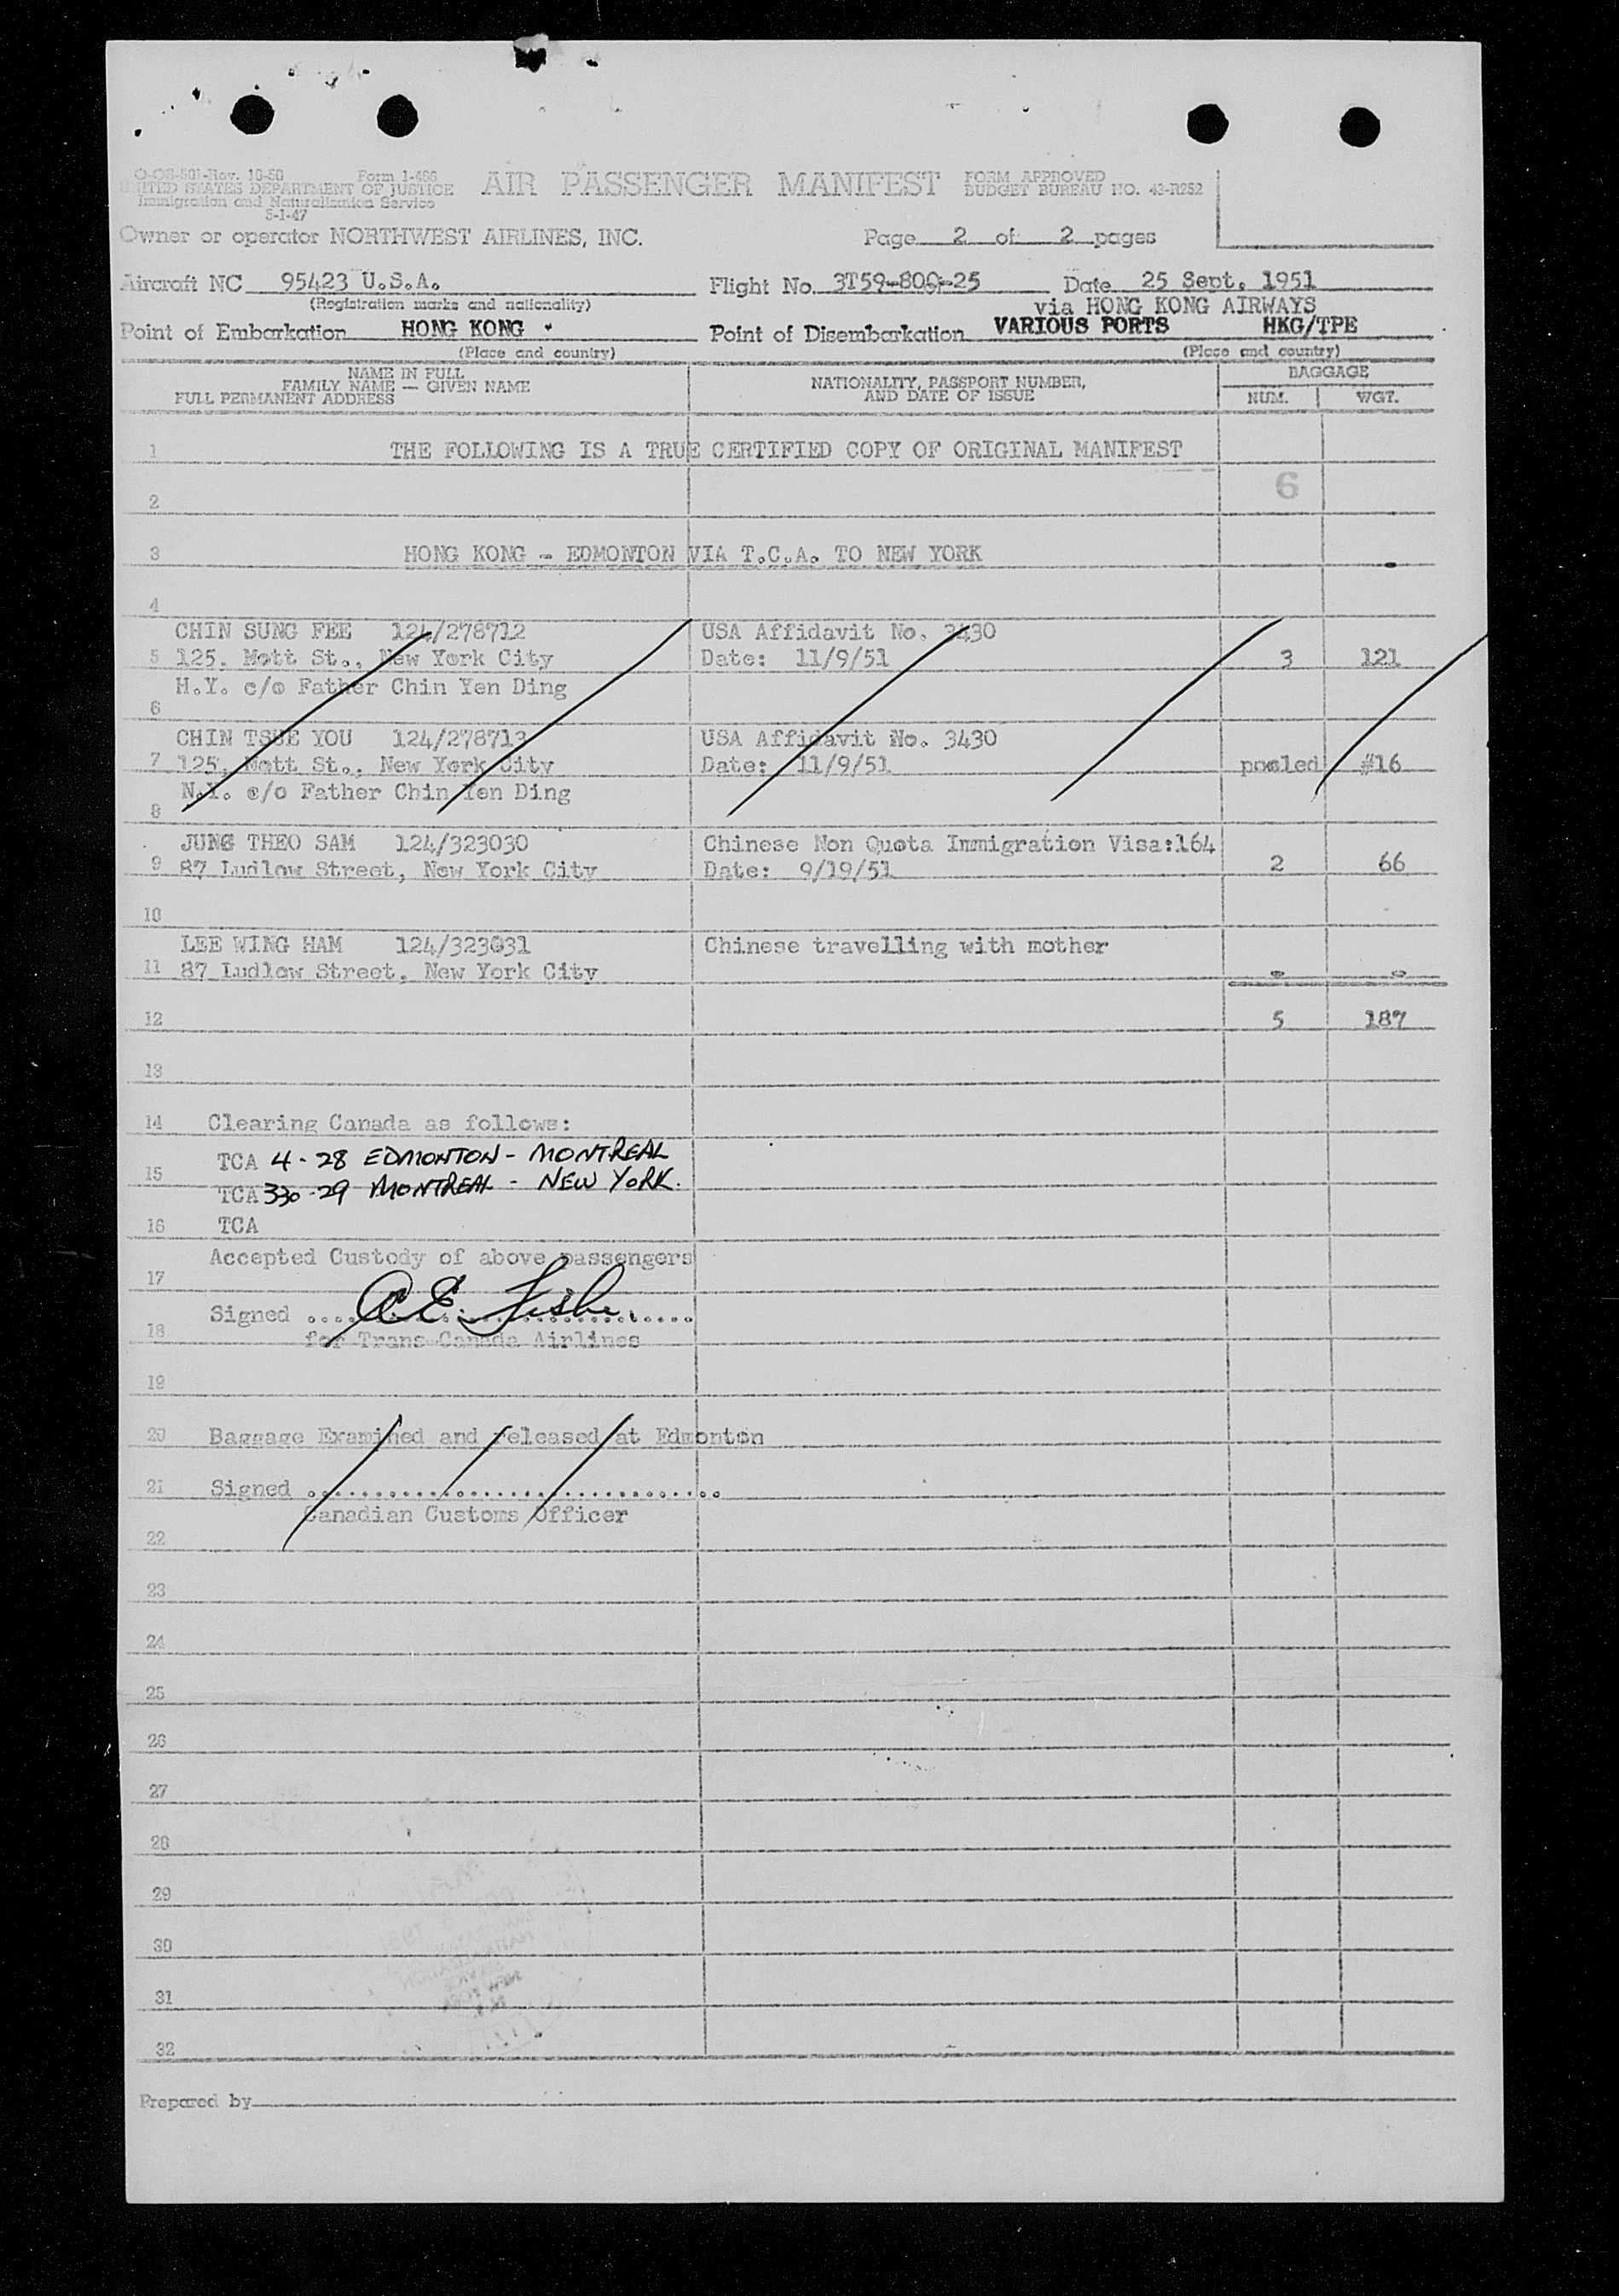 O-OS-501-Rev. 10-50 Form I-466
UNITED STATES DEPARTMENT OF JUSTICE
Immigration and Naturalization Service
5-1-47
AIR PASSENGER MANIFEST
FORM APPROVED
BUDGET BUREAU NO. 43-R252
Owner or operator NORTHWEST AIRLINES, INC. Page 2 of 2 pages
Aircraft NC 95423 U.S.A. Flight No. 3T59-800-25 Date 25 Sept. 1951
(Registration marks and nationality) via HONG KONG AIRWAYS
Point of Embarkation HONG KONG Point of Disembarkation VARIOUS PORTS HKG/TPE
(Place and country) (Place and country)
NAME IN FULL
FAMILY NAME — GIVEN NAME
FULL PERMANENT ADDRESS
NATIONALITY, PASSPORT NUMBER,
AND DATE OF ISSUE
BAGGAGE
NUM. WGT.
1 THE FOLLOWING IS A TRUE CERTIFIED COPY OF ORIGINAL MANIFEST
6
2
3 HONG KONG - EDMONTON VIA T.C.A. TO NEW YORK
4
CHIN SUNG FEE 124/278712 USA Affidavit No. 3430
5 125. Mott St., New York City Date: 11/9/51 3 121
H.Y. c/o Father Chin Yen Ding
6
CHIN TSUE YOU 124/278713 USA Affidavit No. 3430
7 125, Mott St., New York City Date: 11/9/51 pooled #16
N.Y. c/o Father Chin Yen Ding
8
JUNG THEO SAM 124/323030 Chinese Non Quota Immigration Visa:164
9 87 Ludlow Street, New York City Date: 9/19/51 2 66
10
LEE WING HAM 124/323031 Chinese travelling with mother
11 87 Ludlow Street, New York City - -
12 5 187
13
14 Clearing Canada as follows:
TCA 4-28 EDMONTON - MONTREAL
15
TCA 330-29 MONTREAL - NEW YORK.
16 TCA
Accepted Custody of above passengers
17
Signed ........ A.E. Fisher
18
for Trans-Canada Airlines
19
20 Baggage Examined and released at Edmonton
21 Signed ........
Canadian Customs Officer
22
23
24
25
26
27
28
29
30
31
32
Prepared by